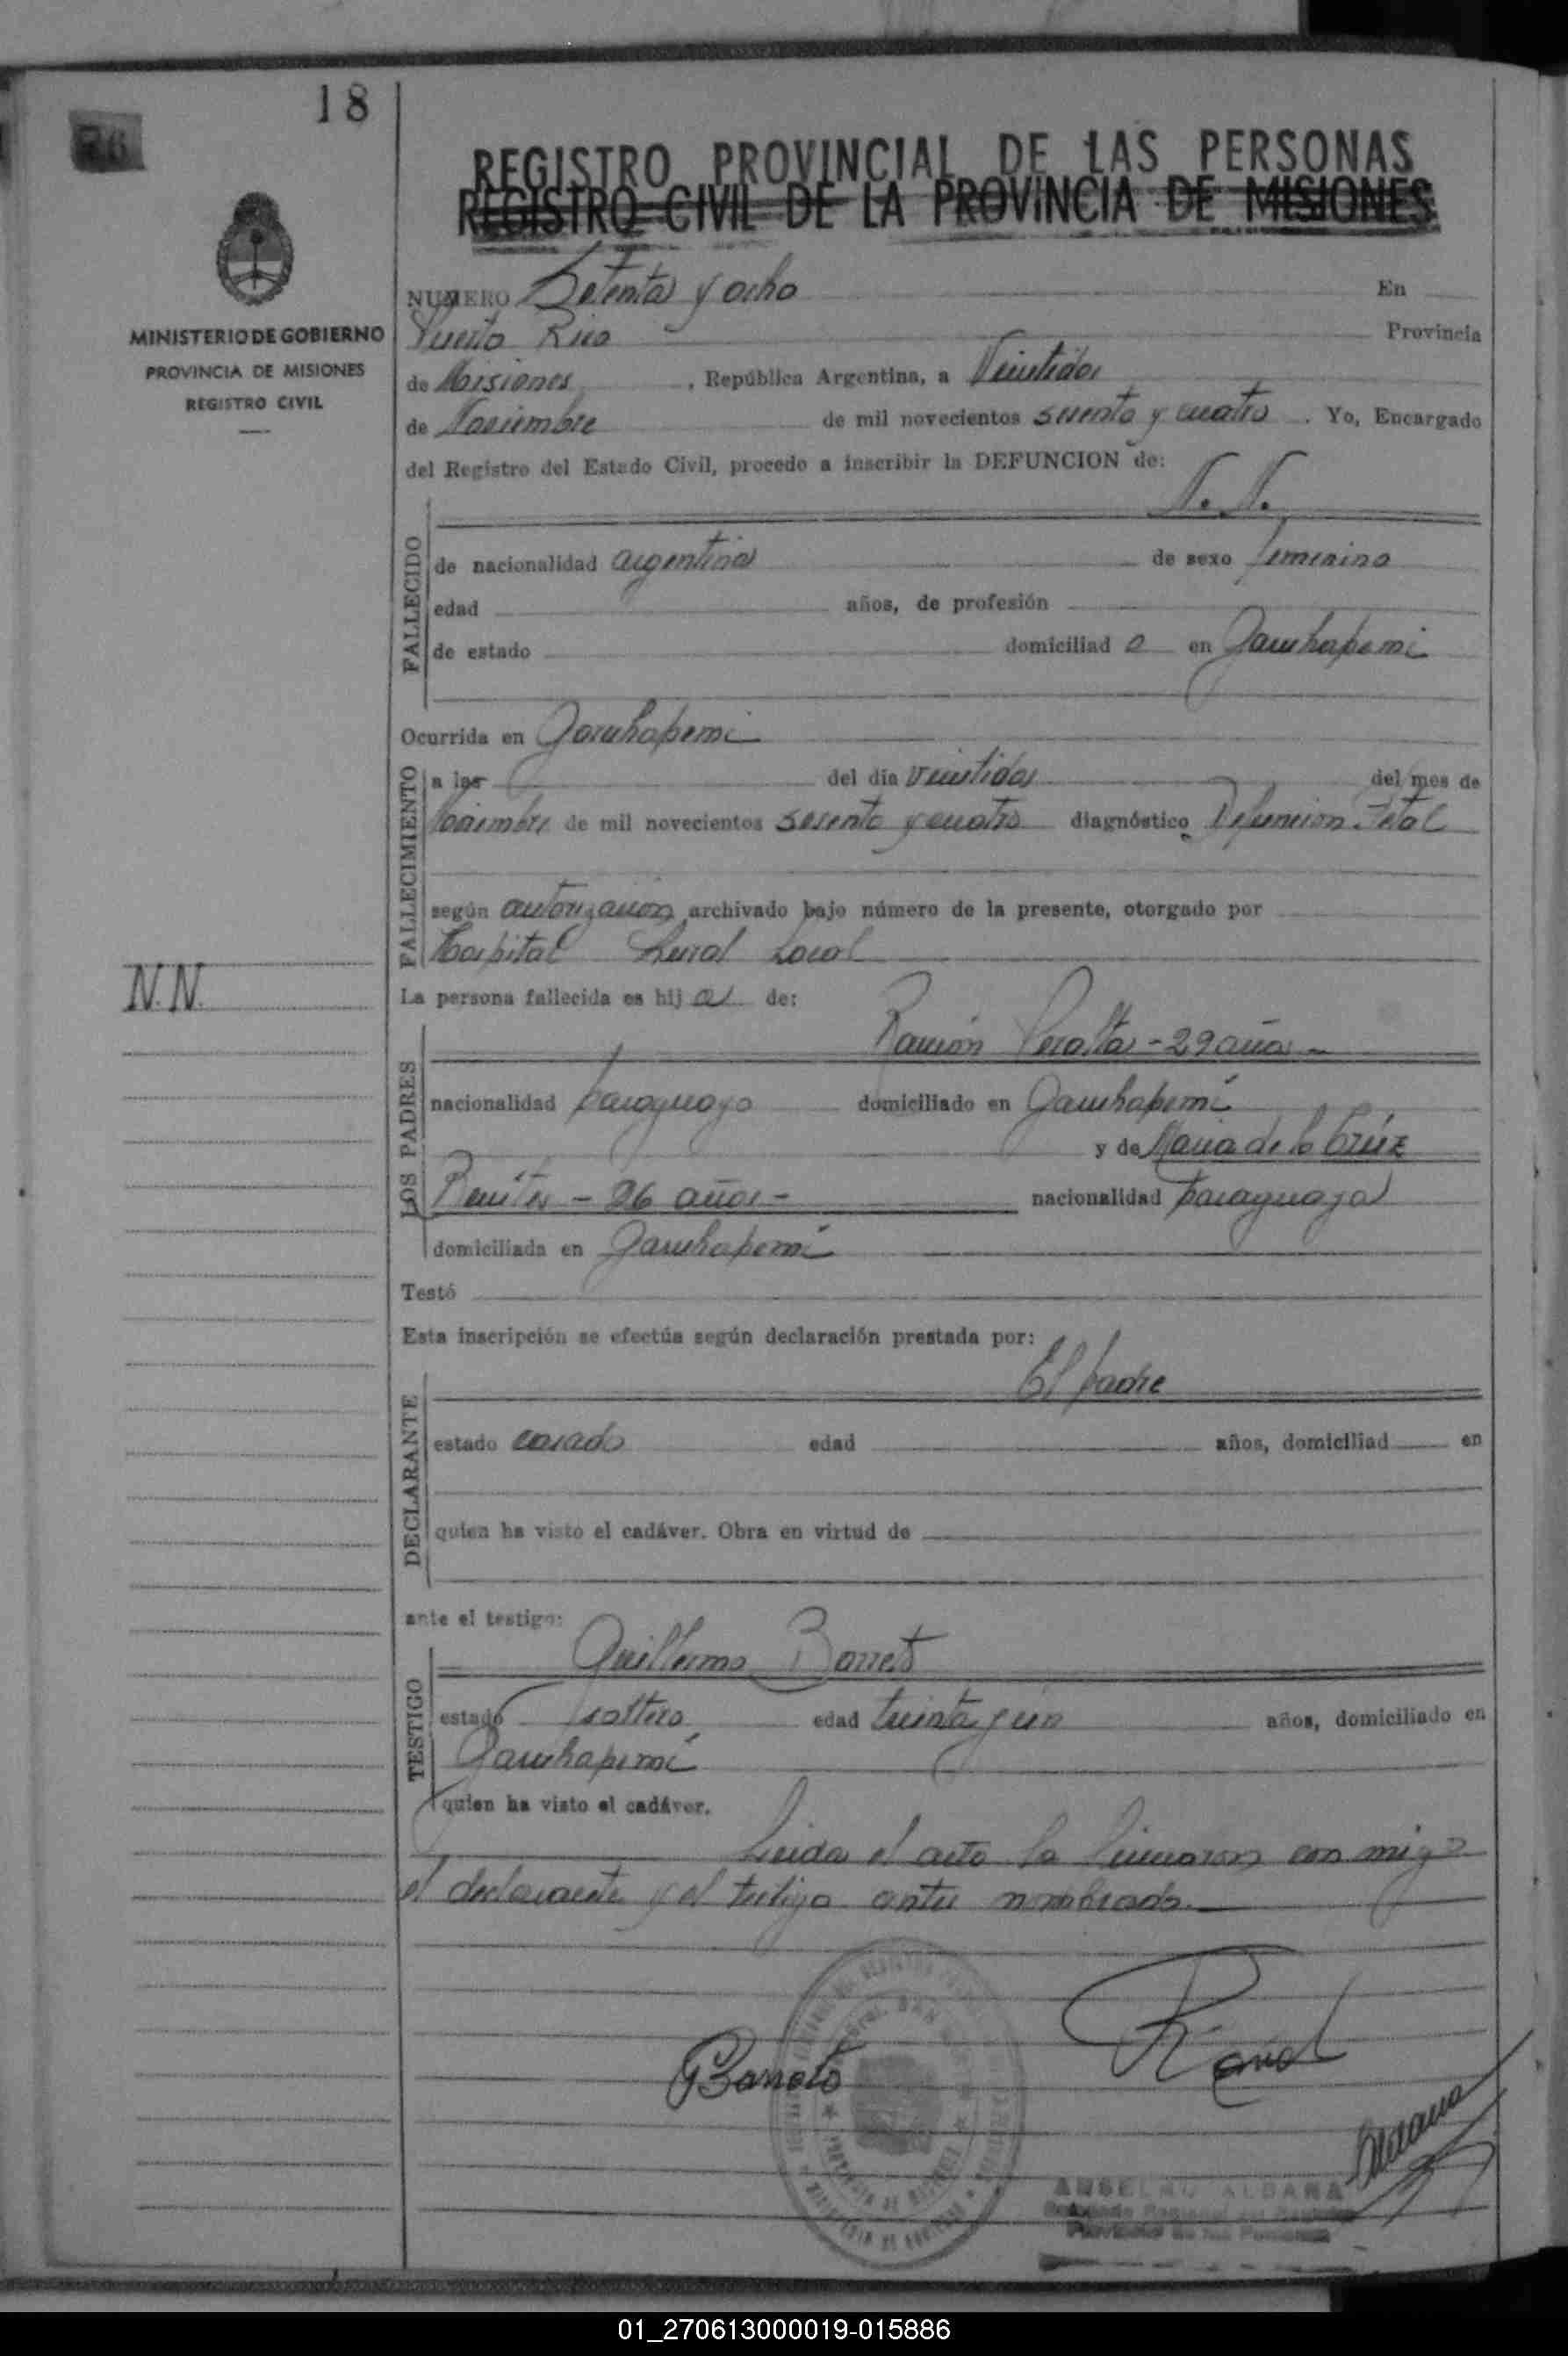 18
REGISTRO PROVINCIAL DE LAS PERSONAS
REGISTRO CIVIL DE LA PROVINCIA DE MISIONES
MINISTERIO DE GOBIERNO
PROVINCIA DE MISIONES
REGISTRO CIVIL
NUMERO Setenta y ocho En
Puerto Rico Provincia
de Misiones, República Argentina, a Veintidos
de Noviembre de mil novecientos sesenta y cuatro. Yo, Encargado
del Registro del Estado Civil, procedo a inscribir la DEFUNCION de:
N. N.
FALLECIDO
de nacionalidad argentina de sexo femenino
edad años, de profesión
de estado domiciliad a en Garuhapemi
Ocurrida en Garuhapemi
FALLECIMIENTO
a las del día veintidos del mes de
Noviembre de mil novecientos sesenta y cuatro diagnóstico Defuncion Fetal
según autorizacion archivado bajo número de la presente, otorgado por
Hospital Rural Local
N.N.
La persona fallecida es hij a de:
LOS PADRES
Ramón Peralta - 29 años -
nacionalidad paraguayo domiciliado en Garuhapemí
y de Maria de la Crúz
Benitez - 26 años - nacionalidad paraguaya
domiciliada en Garuhapemí
Testó
Esta inscripción se efectúa según declaración prestada por:
El padre
DECLARANTE
estado casado edad años, domiciliad en
quien ha visto el cadáver. Obra en virtud de
ante el testigo:
Guillermo Barreto
TESTIGO
estado soltero edad treinta y un años, domiciliado en
Garuhapemí
quien ha visto el cadáver.
Leida el acta la firmaron con migo
el declarante y el testigo antes nombrado.
GBarreto
ANSELMO ALDANA
01_270613000019-015886